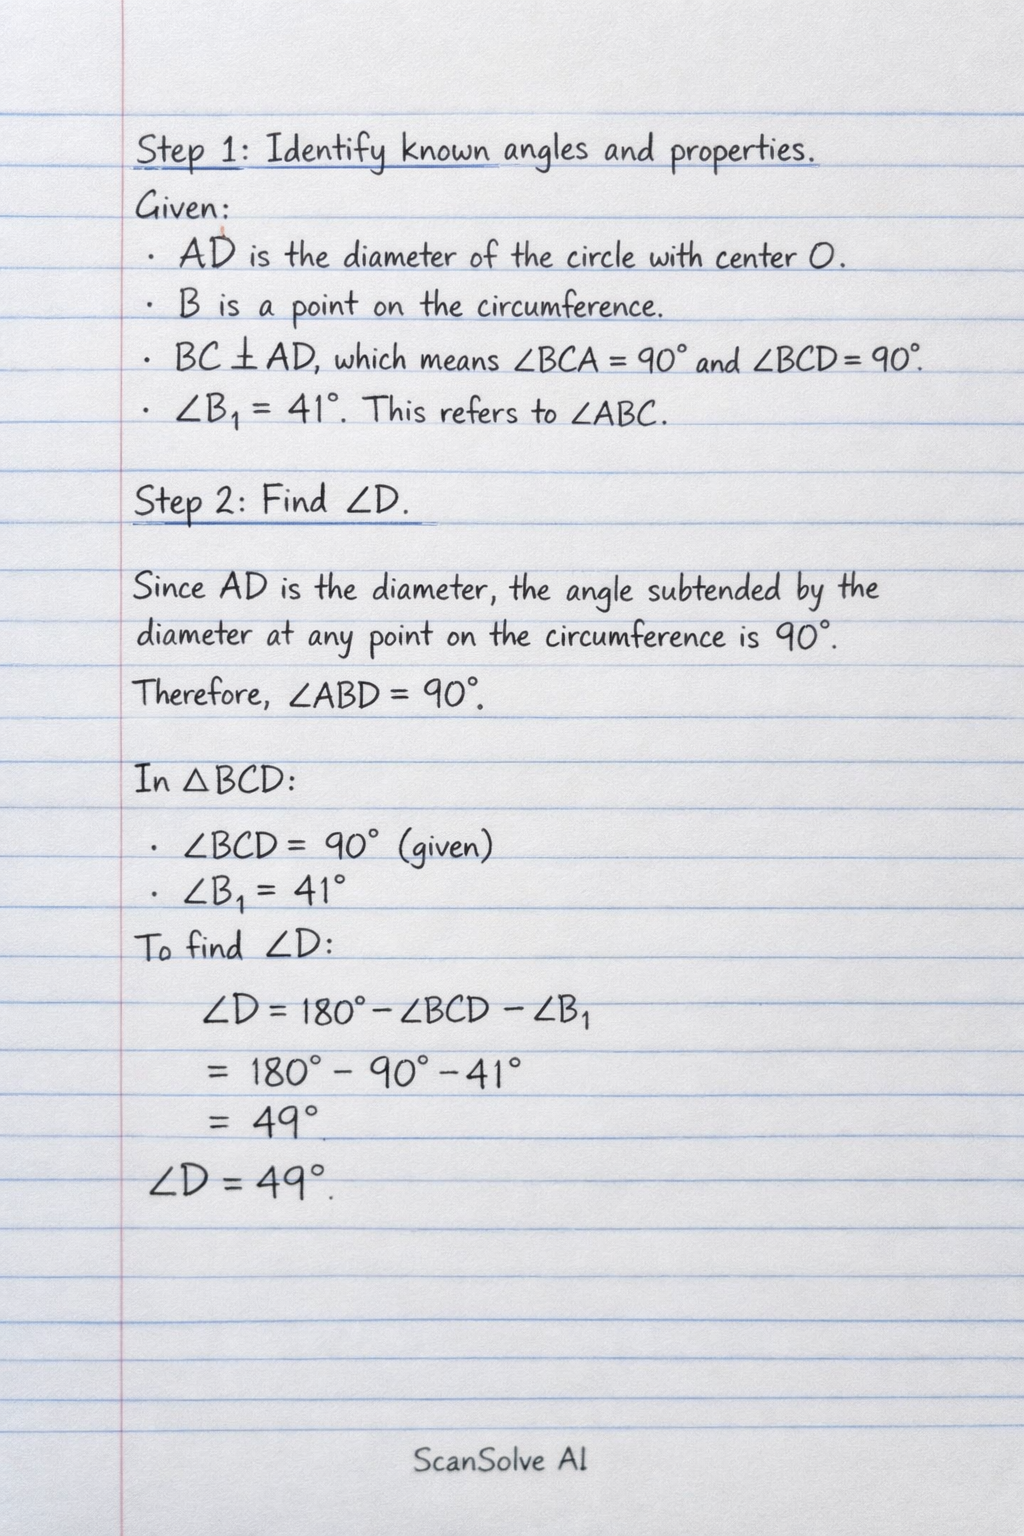 Step 1: Identify known angles and properties.
Given:
· AD is the diameter of the circle with center O.
· B is a point on the circumference.
· BC ± AD, which means ∠BCA = 90° and ∠BCD = 90°.
· ∠B₁ = 41°. This refers to ∠ABC.
Step 2: Find ∠D.
Since AD is the diameter, the angle subtended by the
diameter at any point on the circumference is 90°.
Therefore, ∠ABD = 90°.
In △BCD:
· ∠BCD = 90° (given)
· ∠B₁ = 41°
To find ∠D:
∠D = 180° − ∠BCD − ∠B₁
= 180° − 90° − 41°
= 49°
∠D = 49°.
ScanSolve AI